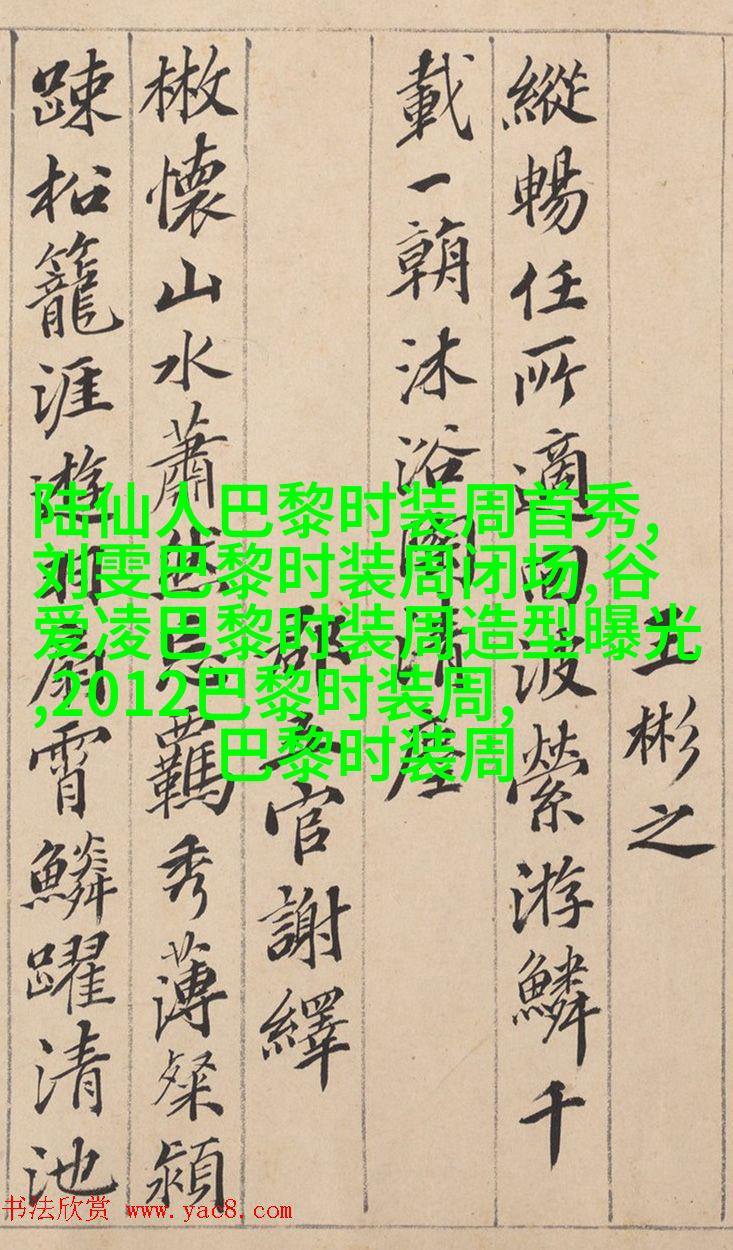 王彬之
縱暢任所適回波縈游鱗千
載一朝沐浴陶清塵
郡五官謝繹
散懷山水蕭然忘羈秀薄粲穎
踈松籠涯遊羽扇霄鱗躍清池
陆仙人巴黎时装周首秀,
刘雯巴黎时装周闭场,谷
爱凌巴黎时装周造型曝光
,2012巴黎时装周,
巴黎时装周
书法欣赏 www.yac8.com